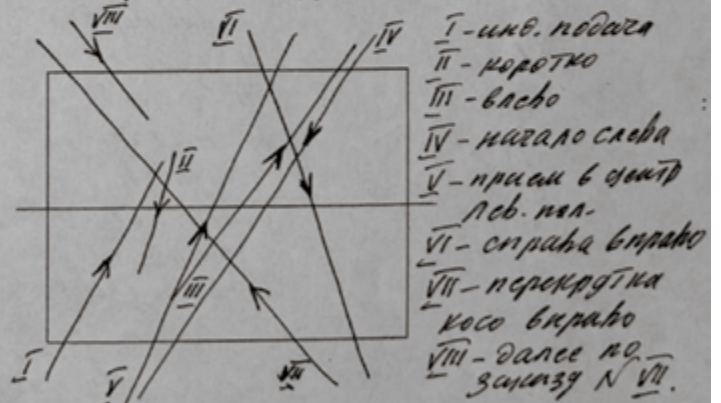 VIII
VI
IV
II
III
I
V
VII
I - инд. подача
II - коротко
III - влево
IV - начало слева
V - прием в центр
лев. пол.
VI - справа вправо
VII - перекрутка
косо вправо
VIII - далее по
заказу N VII.